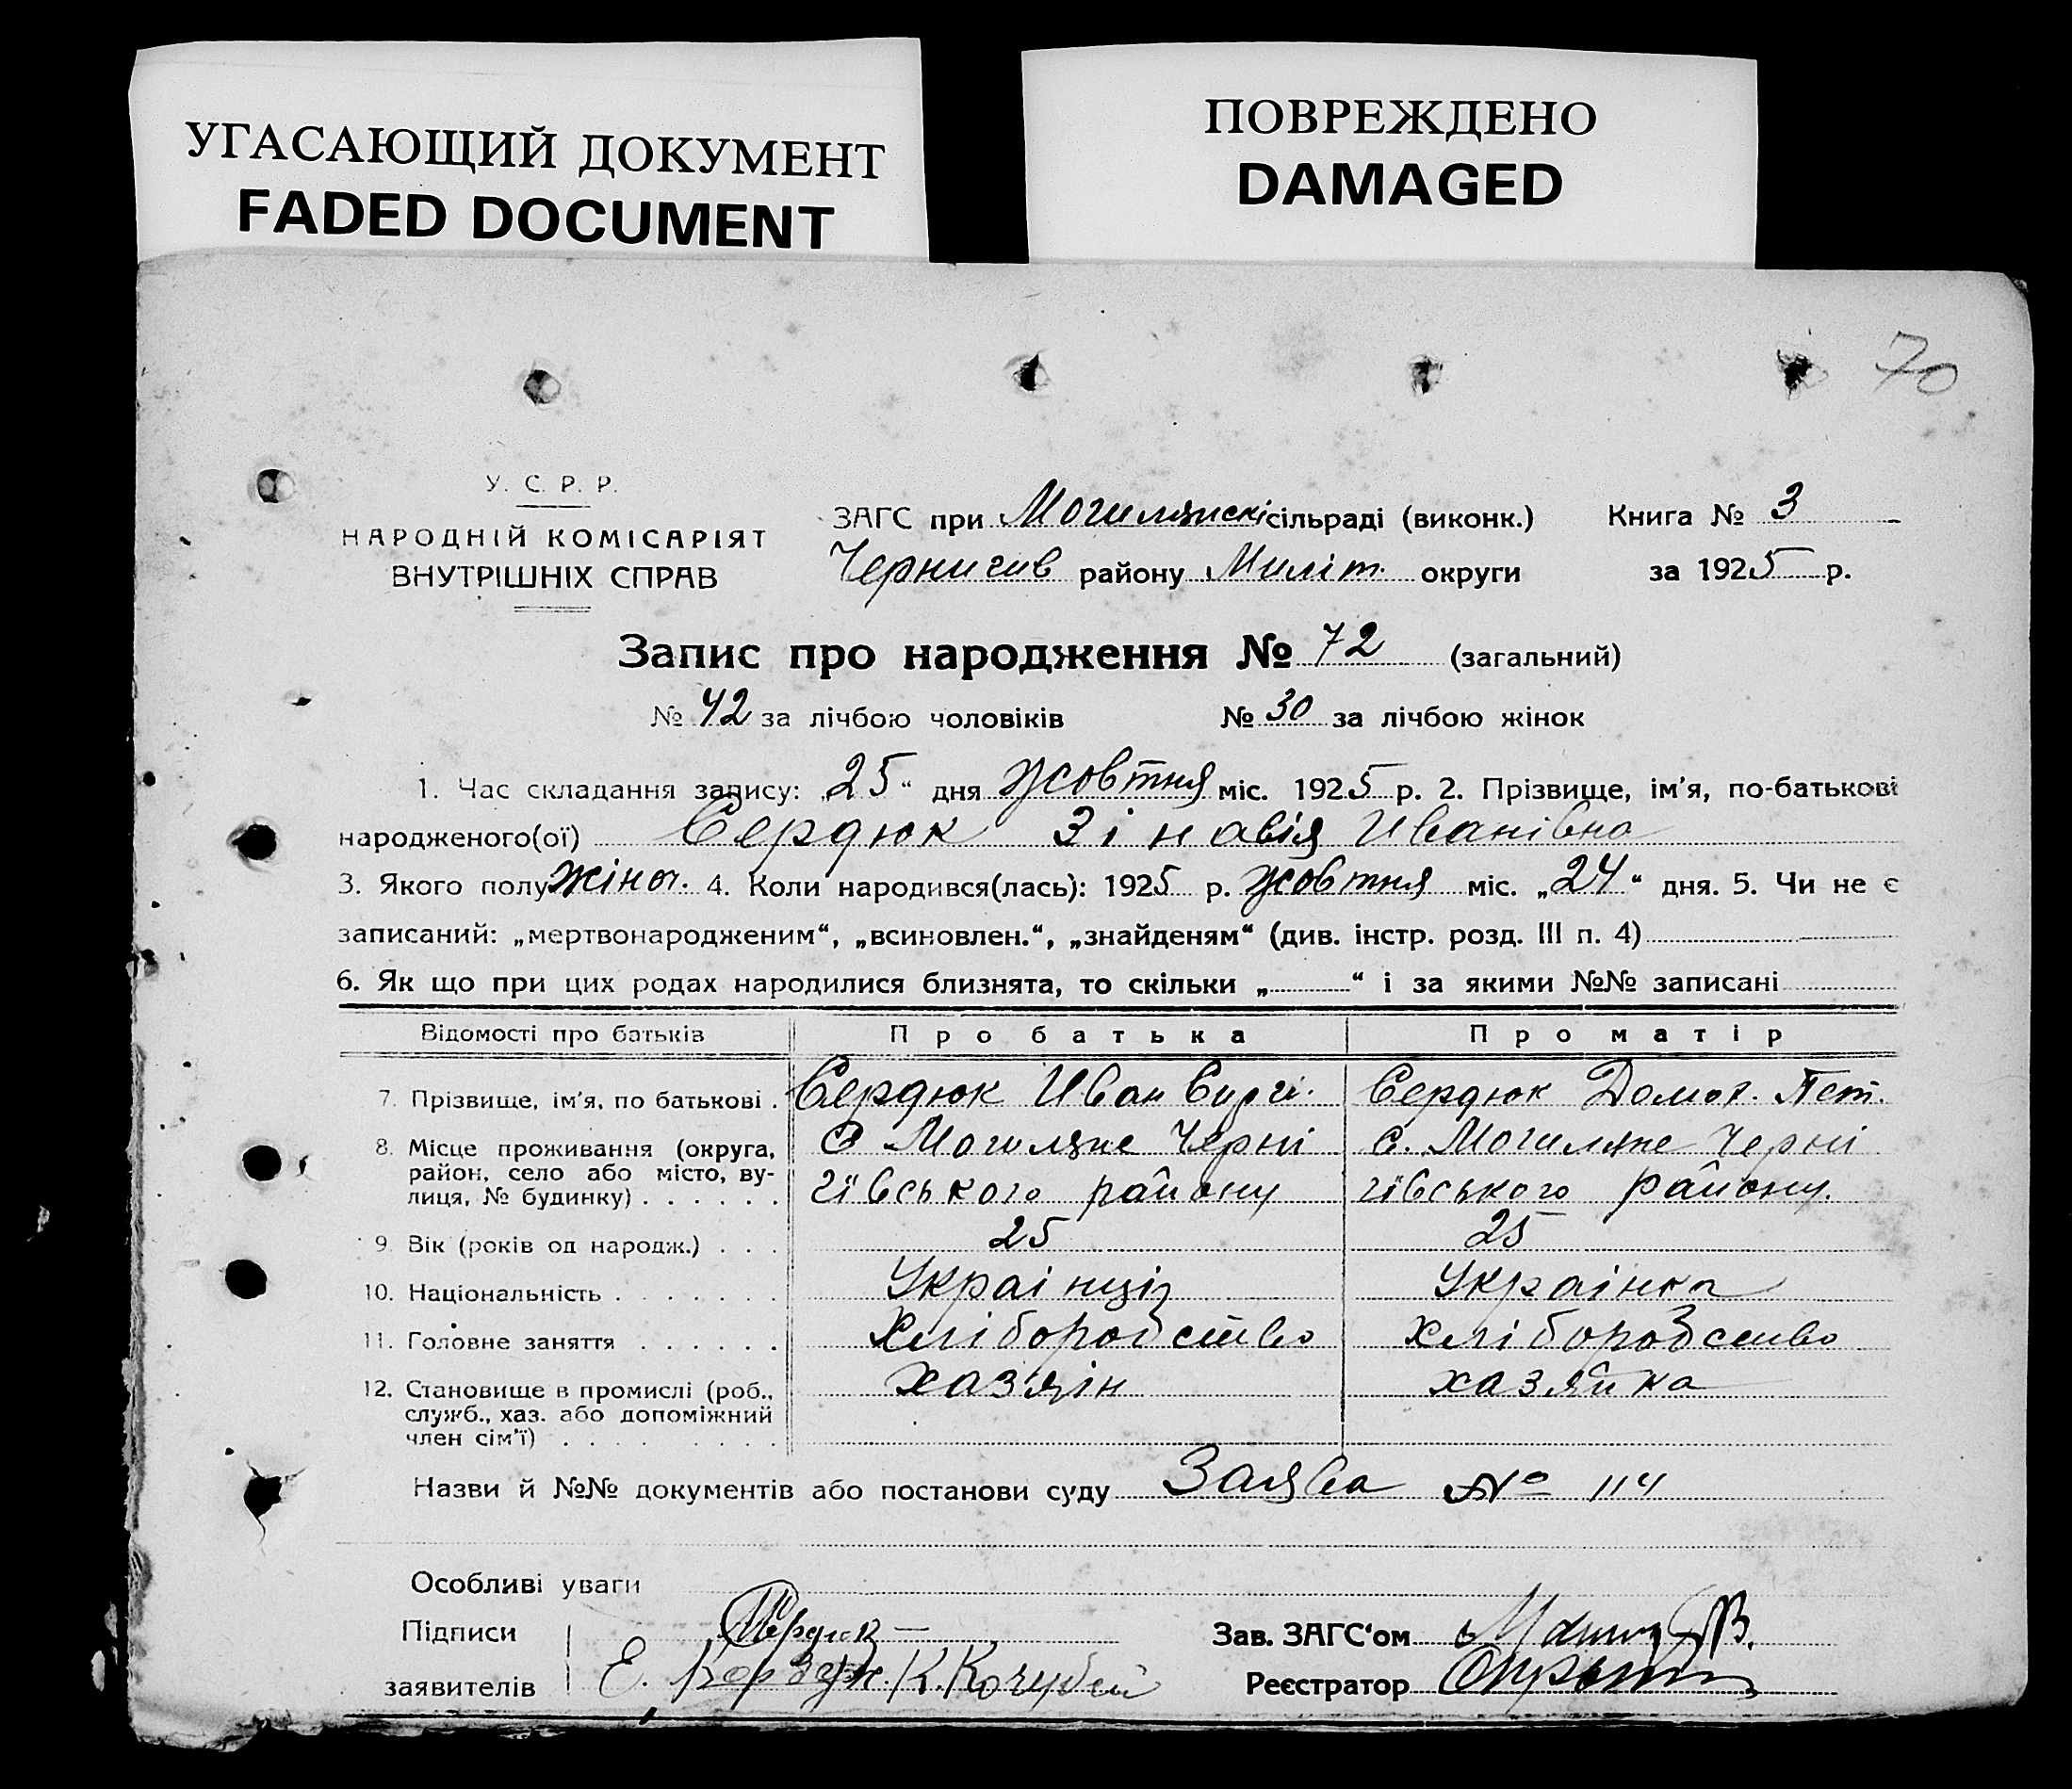 УГАСАЮЩИЙ ДОКУМЕНТ
FADED DOCUMENT
ПОВРЕЖДЕНО
DAMAGED
70
У. С. Р. Р.
НАРОДНІЙ КОМІСАРІЯТ
ВНУТРІШНІХ СПРАВ
ЗАГС при Могилянскі сільраді (виконк.) Книга № 3
Чернигив району Миліт. округи за 1925 р.
Запис про народження № 72 (загальний)
№ 42 за лічбою чоловіків № 30 за лічбою жінок
1. Час складання запису: „25“ дня жовтня міс. 1925 р. 2. Прізвище, ім'я, по-батькові
народженого(ої) Сердюк Зінавія Иванівна
3. Якого полу жіноч. 4. Коли народився(лась): 1925 р. жовтня міс. „24“ дня. 5. Чи не є
записаний: „мертвонародженим“, „всиновлен.“, „знайденям“ (див. інстр. розд. III п. 4)
6. Як що при цих родах народилися близнята, то скільки „ “ і за якими №№ записані
Відомості про батьків Про батька Про матір
7. Прізвище, ім'я, по батькові . Сердюк Иван Сергі. Сердюк Домох. Пет.
8. Місце проживання (округа, С Могиляне Черні С. Могиляне Черні
район, село або місто, ву-
лиця, № будинку) . . . . . . гівського району гівського району.
9. Вік (років од народж.) . . . 25 25
10. Національність . . . . . . . Украінція Украінка
11. Головне заняття . . . . . . Хліборобство хліборобство
12. Становище в промислі (роб., хазяін хазяйка
служб., хаз. або допоміжний
член сім'ї) . . . . . . . . .
Назви й №№ документів або постанови суду Заява № 114
Особливі уваги
Підписи Сердюк Зав. ЗАГС'ом
заявителів Е. К. Кочубей Реєстратор